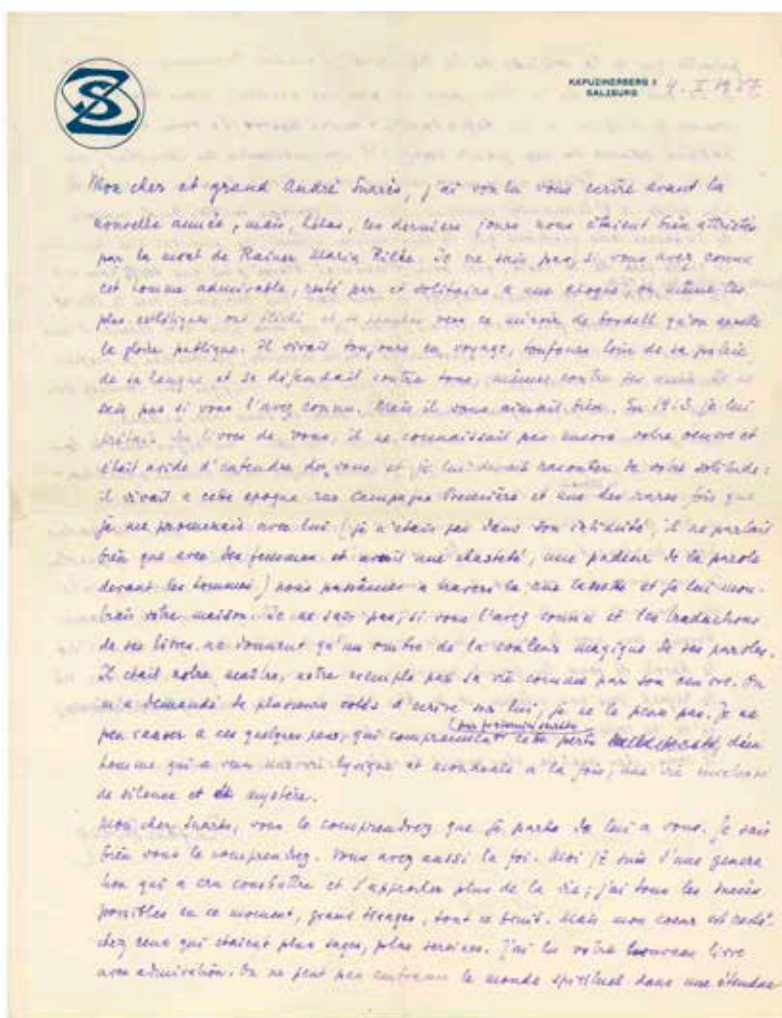 SZ
KAPUZINERBERG 5
SALZBURG 4. I 1927
Mon cher et grand André Suarès, j'ai voulu vous ecrire avant la
nouvelle année, mais, hélas, les derniers jours nous étaient bien attristés
par la mort de Rainer Maria Rilke. Je ne sais pas, si vous avez connu
cet homme admirable, resté pur et solitaire a une epoque ou même les
plus extatiques ont flechi et se vers ce miroir de bordell qu'on appelle
la gloire publique. Il vivait toujours en voyage, toujours loin de sa patrie
de sa langue et se défendait contre tous, mêmes contre ses amis. Je ne
sais pas si vous l'avez connu. Mais il vous aimait bien. En 1913 je lui
prêtais des livres de vous, il ne connaissait pas encore votre oeuvre et
était avide d'entendre de vous et je lui devait raconter de votre solitude:
il vivait a cette epoque rue Campagne Première et une des rares fois que
je me promenais avec lui (je n'etais pas dans son intimité, il ne parlait
bien que avec des femmes et avait une chasteté, une pudeur de la parole
devant les hommes) nous passâmes a travers la rue Cassette et je lui mon-
trais votre maison. Je ne sais pas, si vous l'avez connu et les traductions
de ses livres ne donnent qu'un ombre de la couleur magique de ses paroles.
Il était notre maître, notre exemple par sa vie comme par son oeuvre. On
m'a demandé de plusieurs cotés d'ecrire sur lui, je ne le peux pas. Je ne
peu causer a ces quelques gens, qui comprennent cette perte d'un
homme qui a vecu une vie lyrique et abondante a la fois, une vie enveloppé
de silence et de mystère.
Mon cher Suarès, vous le comprendrez que je parle de lui a vous. Je sais
bien vous le comprendrez. Vous avez aussi la foi. Moi je suis d'une genera
tion qui a cru combattre et s'approcher plus de la vie; j'ai tous les succès
possibles en ce moment, grans tirages, tout ce bruit. Mais mon coeur est resté
chez ceux qui etaient plus sages, plus sereines. J'ai lu votre nouveau livre
avec admiration. On ne peut pas le monde spirituel dans une étendue